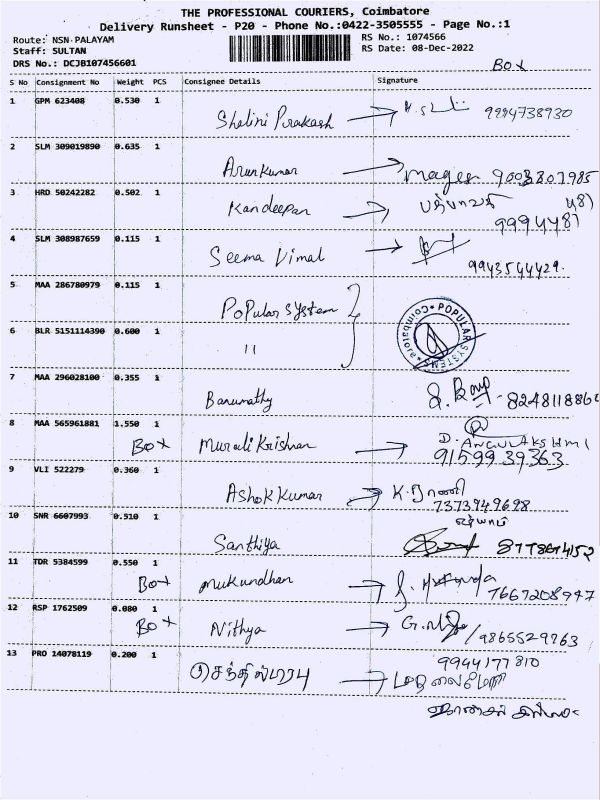 THE PROFESSIONAL COURIERS, Coimbatore
Delivery Runsheet - P20 - Phone No.:0422-3505555 - Page No.:1
Route: NSN PALAYAM RS No.: 1074566
Staff: SULTAN RS Date: 08-Dec-2022
DRS No.: DCJB107456601
BOX
S No Consignment No Weight PCS Consignee Details Signature
1 GPM 623408 0.530 1
Shalini Prakash 9994738930
2 SLM 309019890 0.635 1
Arun Kumar Mages 9003801985
3 HRD 50242282 0.502 1
Kandeepan பத்மாவதி 481
9994481
4 SLM 308987659 0.115 1
Seema Vimal
9943544429.
5 MAA 286780979 0.115 1
Popular System
POPULAR SYSTEMS Coimbatore
6 BLR 5151114390 0.600 1
"
7 MAA 296028100 0.355 1
Banumathy 8248118862
8 MAA 565961881 1.550 1
BOX Murali Krishnan D. ANGULAKSHMI
9159939363
9 VLI 522279 0.360 1
Ashok Kumar K. ராணி
7373949698
10 SNR 6607993 0.510 1
Santhiya 8778674152
11 TDR 5384599 0.550 1
BOX Mukundhan
7667208947
12 RSP 1762509 0.080 1
BOX Nithya 9865529763
13 PRO 14078119 0.200 1
9944177810
செந்தில்பிரபு